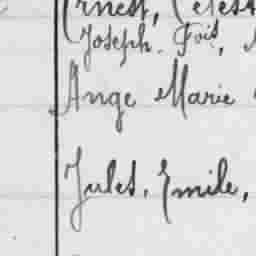 Ernest, Célest
Joseph. Fois,
Ange Marie
Jules, Emile,